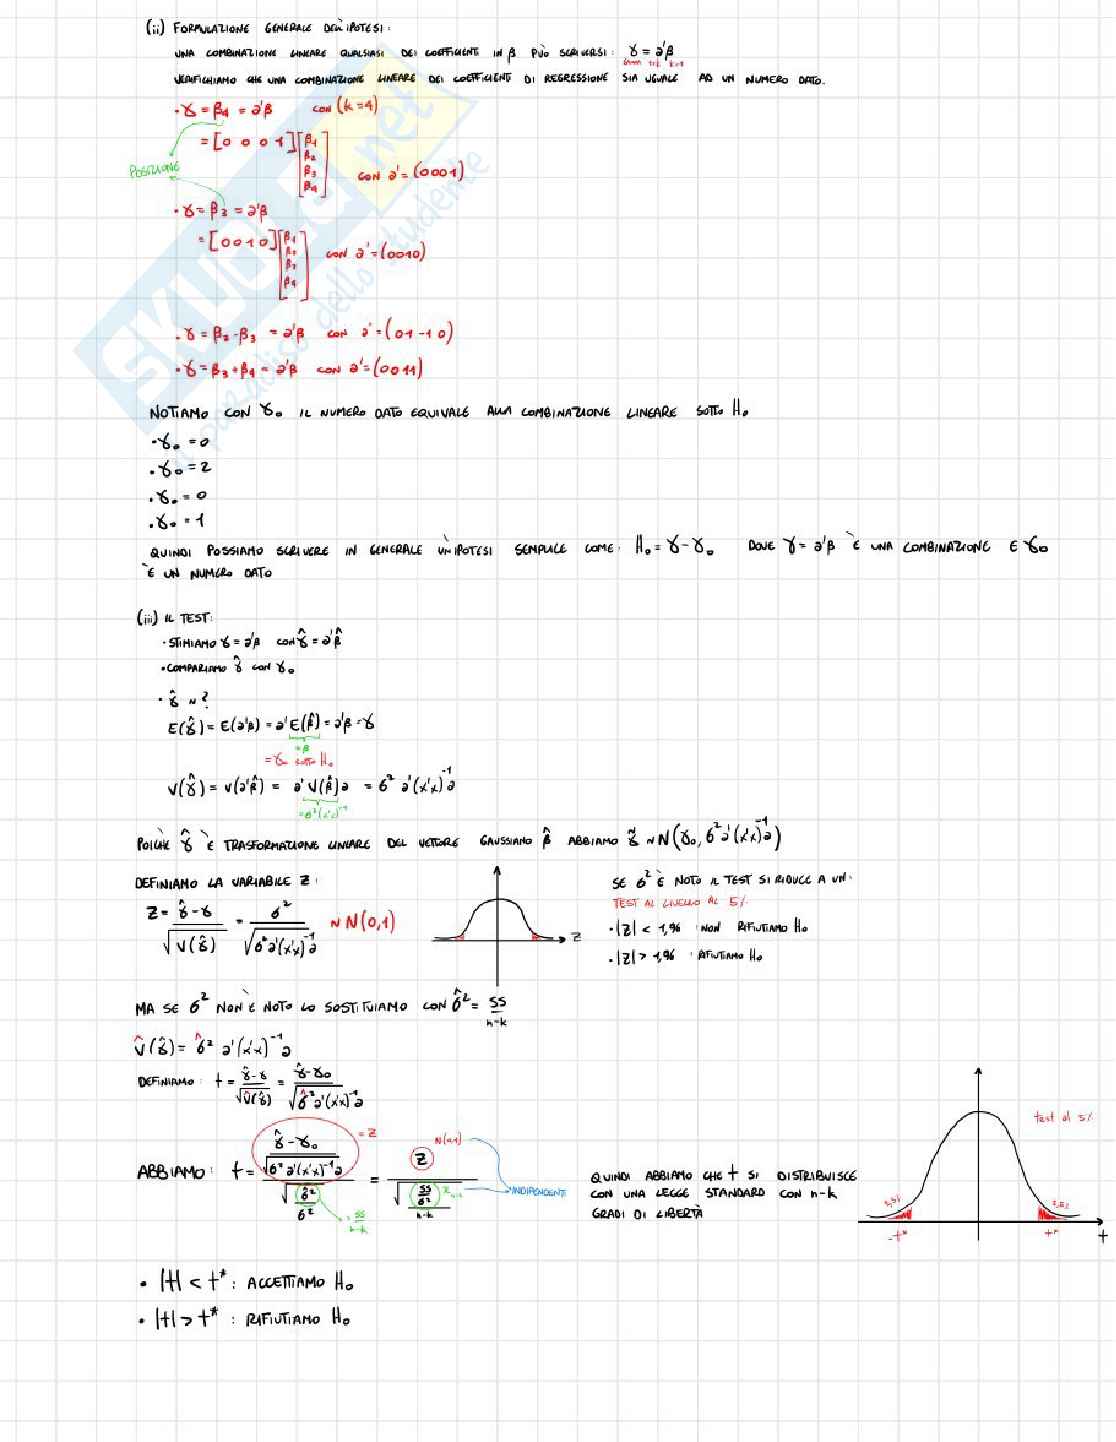 (ii) FORMULAZIONE GENERALE DELL'IPOTESI:
UNA COMBINAZIONE LINEARE QUALSIASI DEI COEFFICIENTI IN β PUÒ SCRIVERSI: γ = a'β
VERIFICHIAMO CHE UNA COMBINAZIONE LINEARE DEI COEFFICIENTI DI REGRESSIONE SIA UGUALE AD UN NUMERO DATO.
· γ = β4 = a'β CON (k=4)
= [0 0 0 1] [β1 β2 β3 β4]
POSIZIONE
CON a' = (0001)
· γ = β3 = a'β
= [0010] [β1 β2 β3 β4] CON a' = (0010)
· γ = β2 - β3 = a'β CON a' = (01 -1 0)
· γ = β3 + β4 = a'β CON a' = (0011)
NOTIAMO CON γ0 IL NUMERO DATO EQUIVALE ALLA COMBINAZIONE LINEARE SOTTO H0
· γ0 = 0
· γ0 = 2
· γ0 = 0
· γ0 = 1
QUINDI POSSIAMO SCRIVERE IN GENERALE UN'IPOTESI SEMPLICE COME: H0 = γ - γ0 DOVE γ = a'β È UNA COMBINAZIONE E γ0
È UN NUMERO DATO
(iii) IL TEST:
· STIMIAMO γ = a'β CON γ̂ = a'β̂
· COMPARIAMO γ̂ CON γ0
· γ̂ ~ ?
E(γ̂) = E(a'β) = a'E(β̂) = a'β = γ
= β
= γ0 SOTTO H0
V(γ̂) = V(a'β̂) = a' V(β̂) a = σ² a'(x'x)⁻¹ a
= σ²(x'x)⁻¹
POICHÈ γ̂ È TRASFORMAZIONE LINEARE DEL VETTORE GAUSSIANO β̂ ABBIAMO γ̂ ~ N(γ0, σ² a'(x'x)⁻¹ a)
DEFINIAMO LA VARIABILE Z:
Z = γ̂ - γ / √V(γ̂) = σ² / √σ² a'(x'x)⁻¹ a ~ N(0,1)
Z
SE σ² È NOTO IL TEST SI RIDUCE A UN:
TEST AL LIVELLO AL 5%
· |Z| < 1,96 : NON RIFIUTIAMO H0
· |Z| > 1,96 : RIFIUTIAMO H0
MA SE σ² NON È NOTO LO SOSTITUIAMO CON σ̂² = SS / n-k
V̂(γ̂) = σ̂² a'(x'x)⁻¹ a
DEFINIAMO: t = γ̂ - γ / √V̂(γ̂) = γ̂ - γ0 / √σ̂² a'(x'x)⁻¹ a
ABBIAMO: t = (γ̂ - γ0 / √σ² a'(x'x)⁻¹ a) / √(σ̂² / σ²) = Z / √((SS / σ²) / n-k)
= Z
N(0,1)
INDIPENDENTI
= SS / n-k
QUINDI ABBIAMO CHE t SI DISTRIBUISCE
CON UNA LEGGE STANDARD CON n-k
GRADI DI LIBERTÀ
test al 5%
2,5%
2,5%
-t*
t*
t
· |t| < t* : ACCETTIAMO H0
· |t| > t* : RIFIUTIAMO H0
SKUOLA.net
il paradiso dello studente